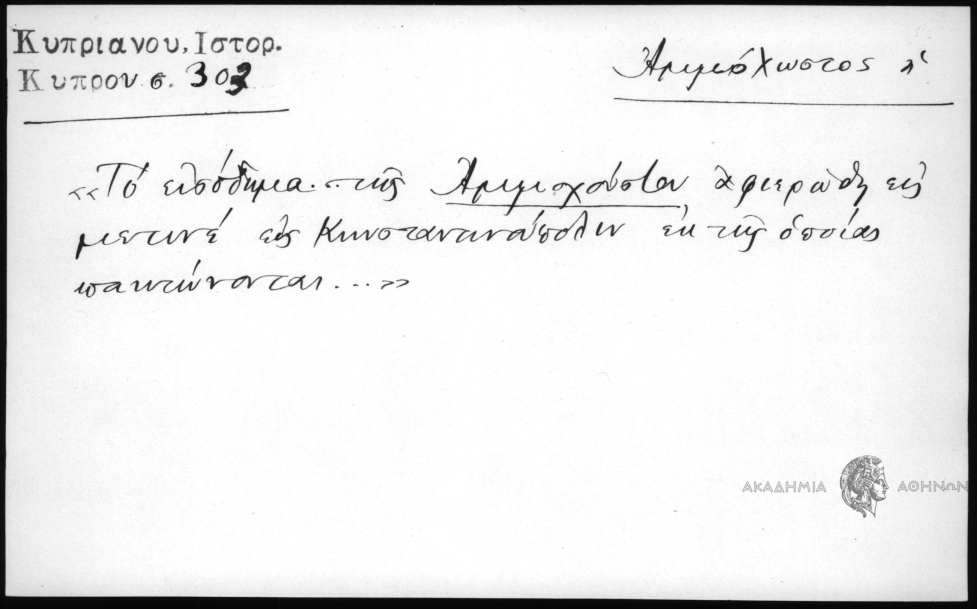 Κυπριανου, Ιστορ.
Κυπρου σ. 303
Ἀμμόχωστος ἡ
«Τό εἰσόδημα... τῆς Ἀμμοχούστου ἀφιερώθη εἰς
μεντινέ εἰς Κωνσταντινούπολιν ἐκ τῆς ὁποίας
πακτώνονται ...»
ΑΚΑΔΗΜΙΑ ΑΘΗΝΩΝ